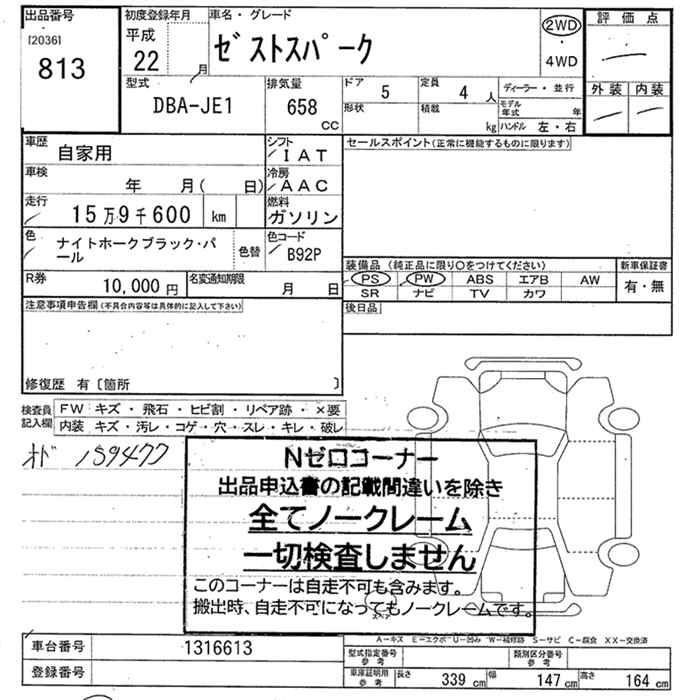 出品番号
[2036]
813
初度登録年月
平成
22
月
車名・グレード
ゼストスパーク
2WD
4WD
評価点
外装 内装
型式
DBA-JE1
排気量
658
CC
ドア
5
定員
4 人
形状
積載
kg
ディーラー・並行
モデル年式
年
ハンドル 左・右
車歴
自家用
シフト
IAT
車検
年 月( 日)
冷房
AAC
走行
15万9千600 km
燃料
ガソリン
色
ナイトホークブラック・パール
色替
色コード
B92P
R券
10,000 円
名変通知期限
月 日
セールスポイント(正常に機能するものに限ります)
装備品(純正品に限り○をつけてください)
PS PW ABS エアB AW
SR ナビ TV カワ
新車保証書
有・無
後日品
注意事項申告欄(不具合内容等は具体的に記入して下さい)
修復歴 有〔箇所 〕
検査員記入欄
FW キズ・飛石・ヒビ割・リペア跡・×要
内装 キズ・汚レ・コゲ・穴・スレ・キレ・破レ
オド 159477
Nゼロコーナー
出品申込書の記載間違いを除き
全てノークレーム
一切検査しません
このコーナーは自走不可も含みます。
搬出時、自走不可になってもノークレームです。
A−キズ E−エクボ U−凹み W−補修跡 S−サビ C−腐食 XX−交換済
車台番号
1316613
登録番号
型式指定番号
参考
類別区分番号
参考
車庫証明用
参考
長さ 339 cm
幅 147 cm
高さ 164 cm